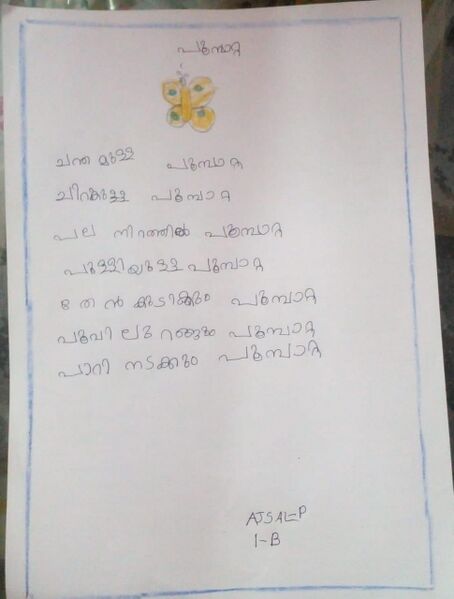 പൂമ്പാറ്റ
ചന്തമുള്ള പൂമ്പാറ്റ
ചിറകുള്ള പൂമ്പാറ്റ
പല നിറത്തിൽ പൂമ്പാറ്റ
പുള്ളിയുള്ള പൂമ്പാറ്റ
തേൻ കുടിക്കും പൂമ്പാറ്റ
പൂവിലുറങ്ങും പൂമ്പാറ്റ
പാറി നടക്കും പൂമ്പാറ്റ
AJSAL-P
1-B